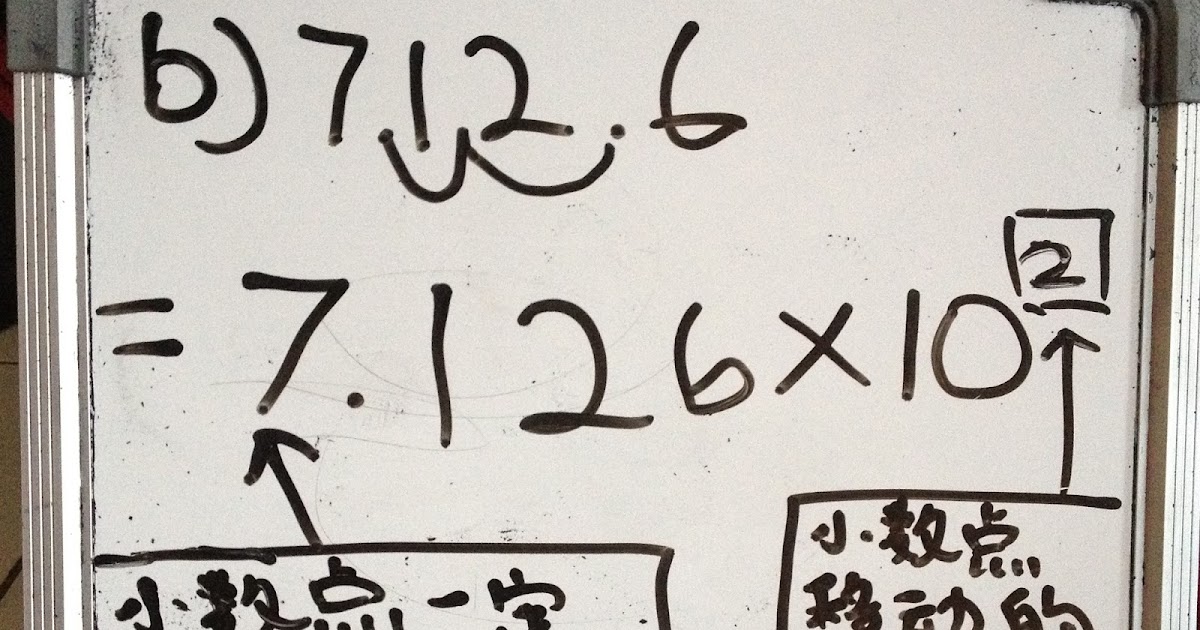 b) 712.6
= 7.126 × 10²
小数点一定
小数点
移动的